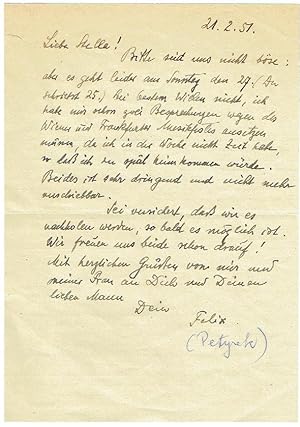 21. 2. 51.
Liebe Stella!
Bitte seid uns nicht böse:
aber es geht leider am Sonntag den 27. (Du
schriebst 25.) bei bestem Willen nicht, ich
habe mir schon zwei Besprechungen wegen des
Wiener und Frankfurter Musikfestes ansetzen
müssen, da ich in der Woche nicht Zeit habe,
so daß ich zu spät heimkommen würde.
Beides ist sehr dringend und nicht mehr
Sei versichert, daß wir es
nachholen werden, so bald es möglich ist.
Wir freuen uns beide schon drauf!
Mit herzlichen Grüßen von mir und
meiner Frau an Dich und Deinen
lieben Mann
Dein
Felix
(Petyrek)